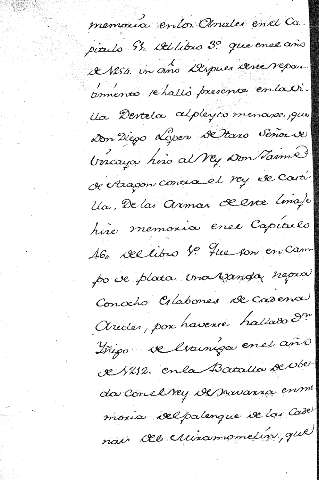 memoria en los Anales en el Ca-
pitulo 51. del libro 3º. que en el año
de 1254. un año despues de este repar-
timiento se halló presente en la Vi-
lla de Estela al pleyto menaxe, que
Don Diego Lopez de Haro Señor de
Vizcaya hizo al Rey Don Jaime
de Aragon contra el Rey de Casti-
lla. De las Armas de este linaje
hize memoria en el Capitulo
46. del libro 4º. Que son en Cam-
po de plata una Vanda negra
con ocho Eslabones de cadena
Azules, por haverse hallado Dn
Iñigo de en el año
de 1212. en la Batalla de Ube-
da con el Rey de Navarra en me-
moria del palenque de las Cade-
nas del Miramomelin, que